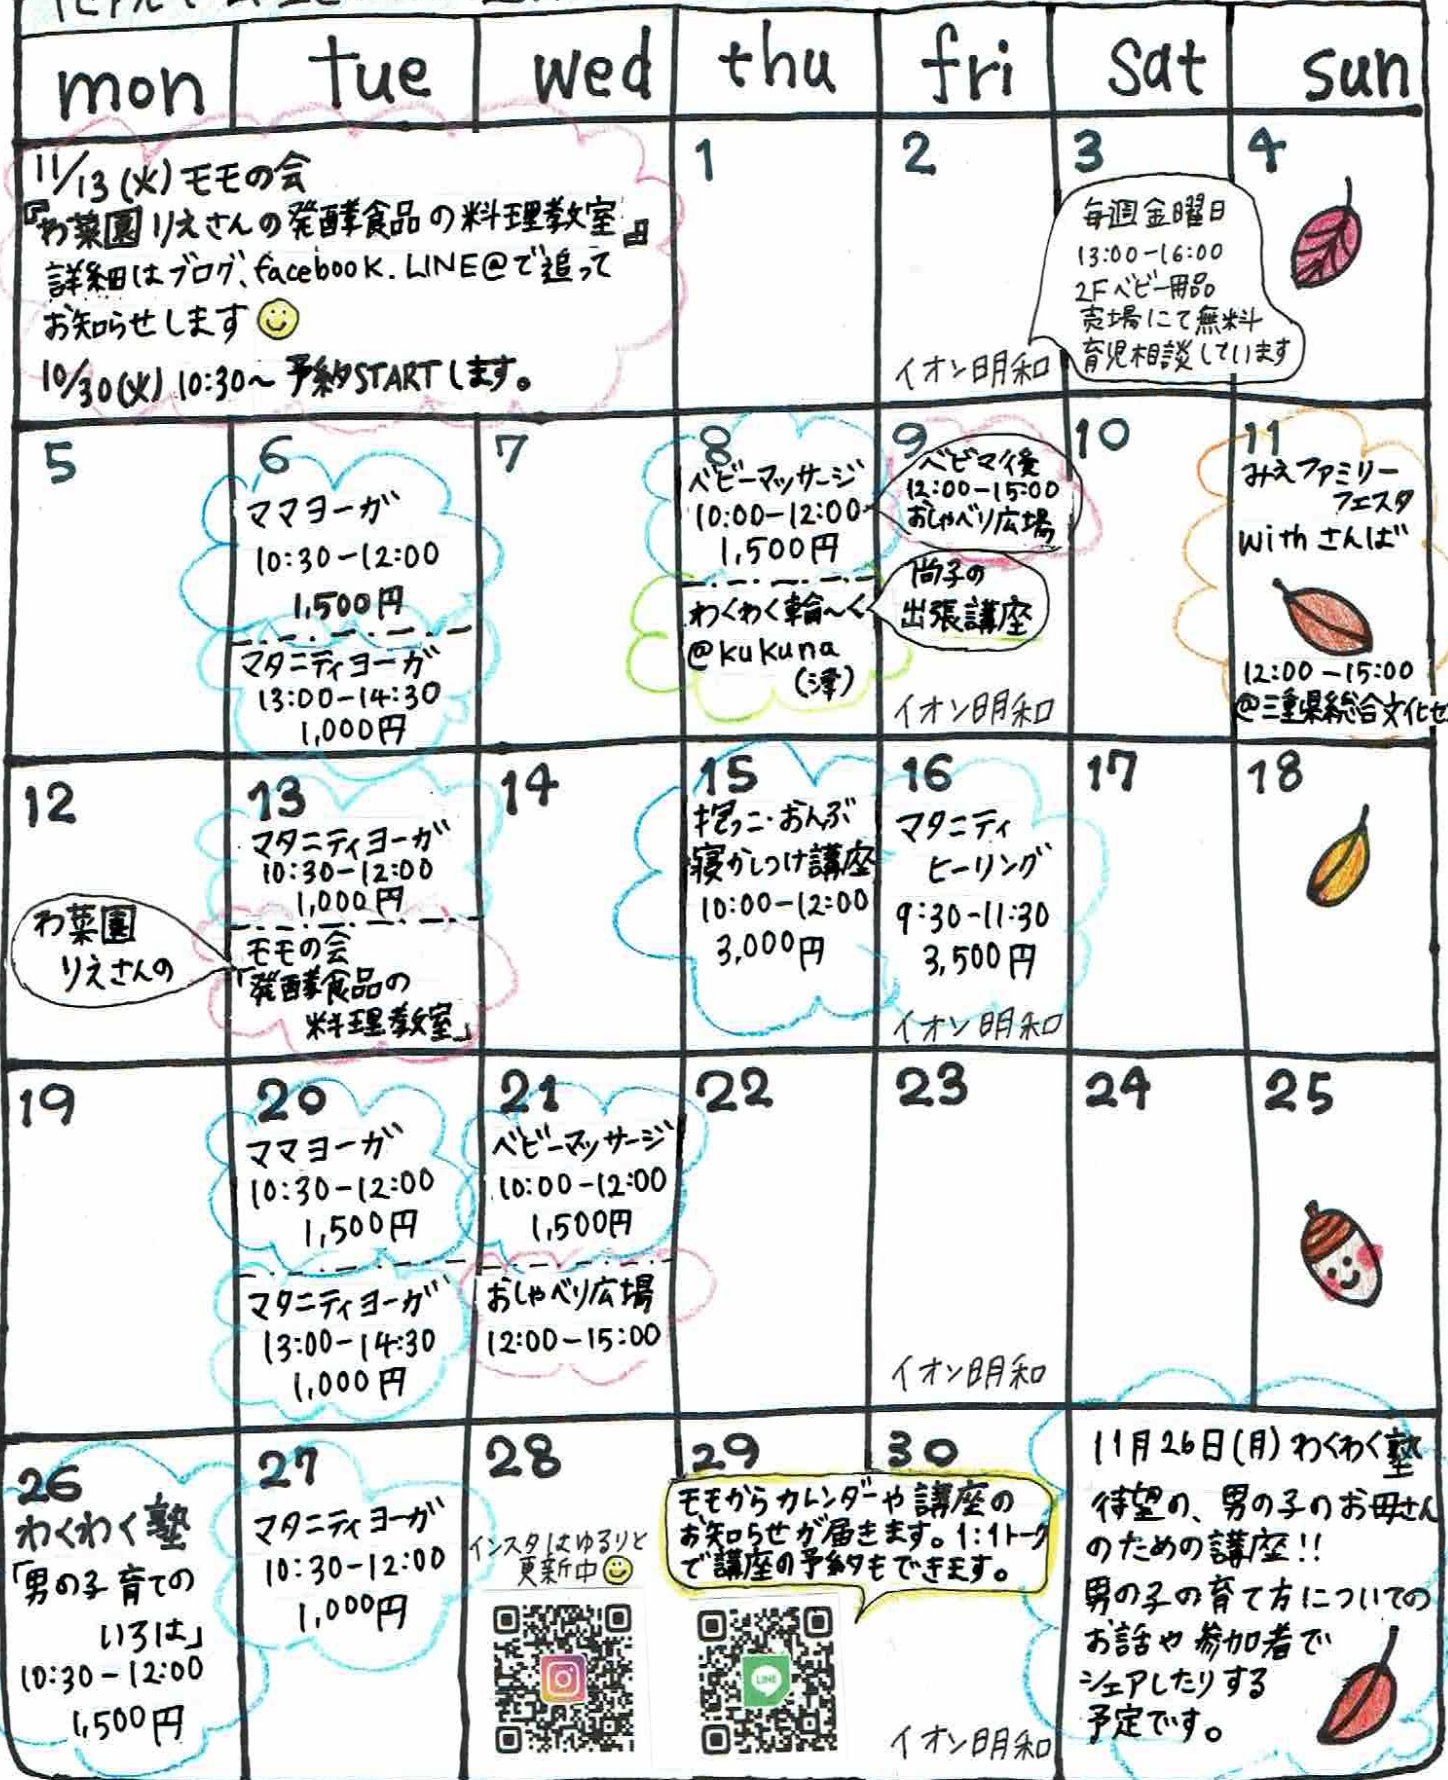 mon tue wed thu fri sat sun
11/13(火)モモの会
『わ菜園りえさんの発酵食品の料理教室』
詳細はブログ、facebook.LINE@で追って
お知らせします
10/30(火)10:30〜予約STARTします。
1
2
イオン明和
3
毎週金曜日
13:00-16:00
2Fベビー用品
売場にて無料
育児相談しています
4
5
6
ママヨーガ
10:30-12:00
1,500円
マタニティヨーガ
13:00-14:30
1,000円
7
8
ベビーマッサージ
10:00-12:00
1,500円
わくわく輪〜く
@kukuna
(津)
9
ベビマ後
12:00-15:00
おしゃべり広場
尚子の
出張講座
イオン明和
10
11
みえファミリー
フェスタ
withさんば
12:00-15:00
@三重県総合文化セ
12
わ菜園
りえさんの
13
マタニティヨーガ
10:30-12:00
1,000円
モモの会
「発酵食品の
料理教室」
14
15
抱っこ・おんぶ
寝かしつけ講座
10:00-12:00
3,000円
16
マタニティ
ヒーリング
9:30-11:30
3,500円
イオン明和
17
18
19
20
ママヨーガ
10:30-12:00
1,500円
マタニティヨーガ
13:00-14:30
1,000円
21
ベビーマッサージ
10:00-12:00
1,500円
おしゃべり広場
12:00-15:00
22
23
イオン明和
24
25
26
わくわく塾
「男の子育ての
いろは」
10:30-12:00
1,500円
27
マタニティヨーガ
10:30-12:00
1,000円
28
インスタはゆるりと
更新中
29
30
モモからカレンダーや講座の
お知らせが届きます。1:1トーク
で講座の予約もできます。
LINE
イオン明和
11月26日(月)わくわく塾
待望の、男の子のお母さん
のための講座!!
男の子の育て方についての
お話や参加者で
シェアしたりする
予定です。